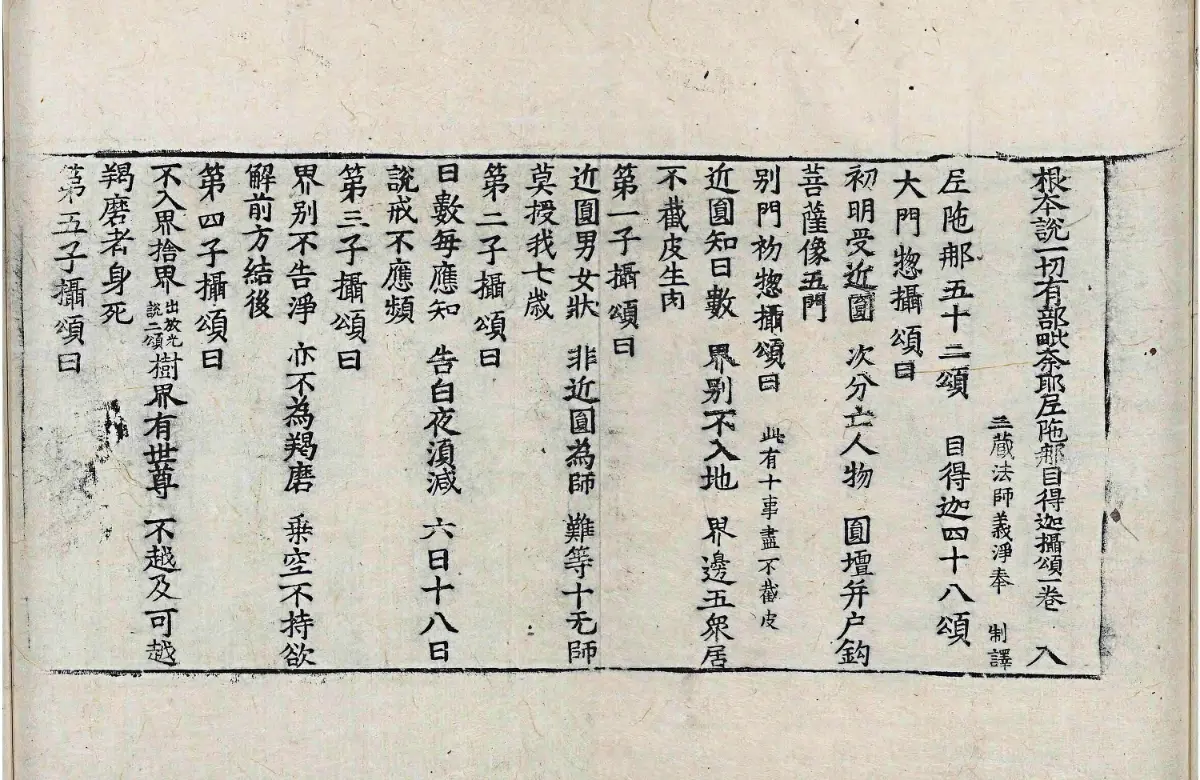 根本說一切有部毗奈耶尼陁那目得迦攝頌一卷 入
三藏法師義淨奉 制譯
尼陁那五十二頌 目得迦四十八頌
大門惣攝頌曰
初明受近圓 次分亡人物 圓壇并户鈎
菩薩像五門
别門初惣攝頌曰 此有十事盡不截皮
近圓知日數 界别不入地 界邊五衆居
不截皮生肉
第一子攝頌曰
近圓男女狀 非近圓為師 難等十无師
莫授我七歳
第二子攝頌曰
日數每應知 告白夜湏減 六日十八日
說戒不應頻
第三子攝頌曰
界别不告淨 亦不為羯磨 乗空不持欲
解前方結後
第四子攝頌曰
不入界捨界 出放光說二頌 樹界有世尊 不越及可越
羯磨者身死
第五子攝頌曰